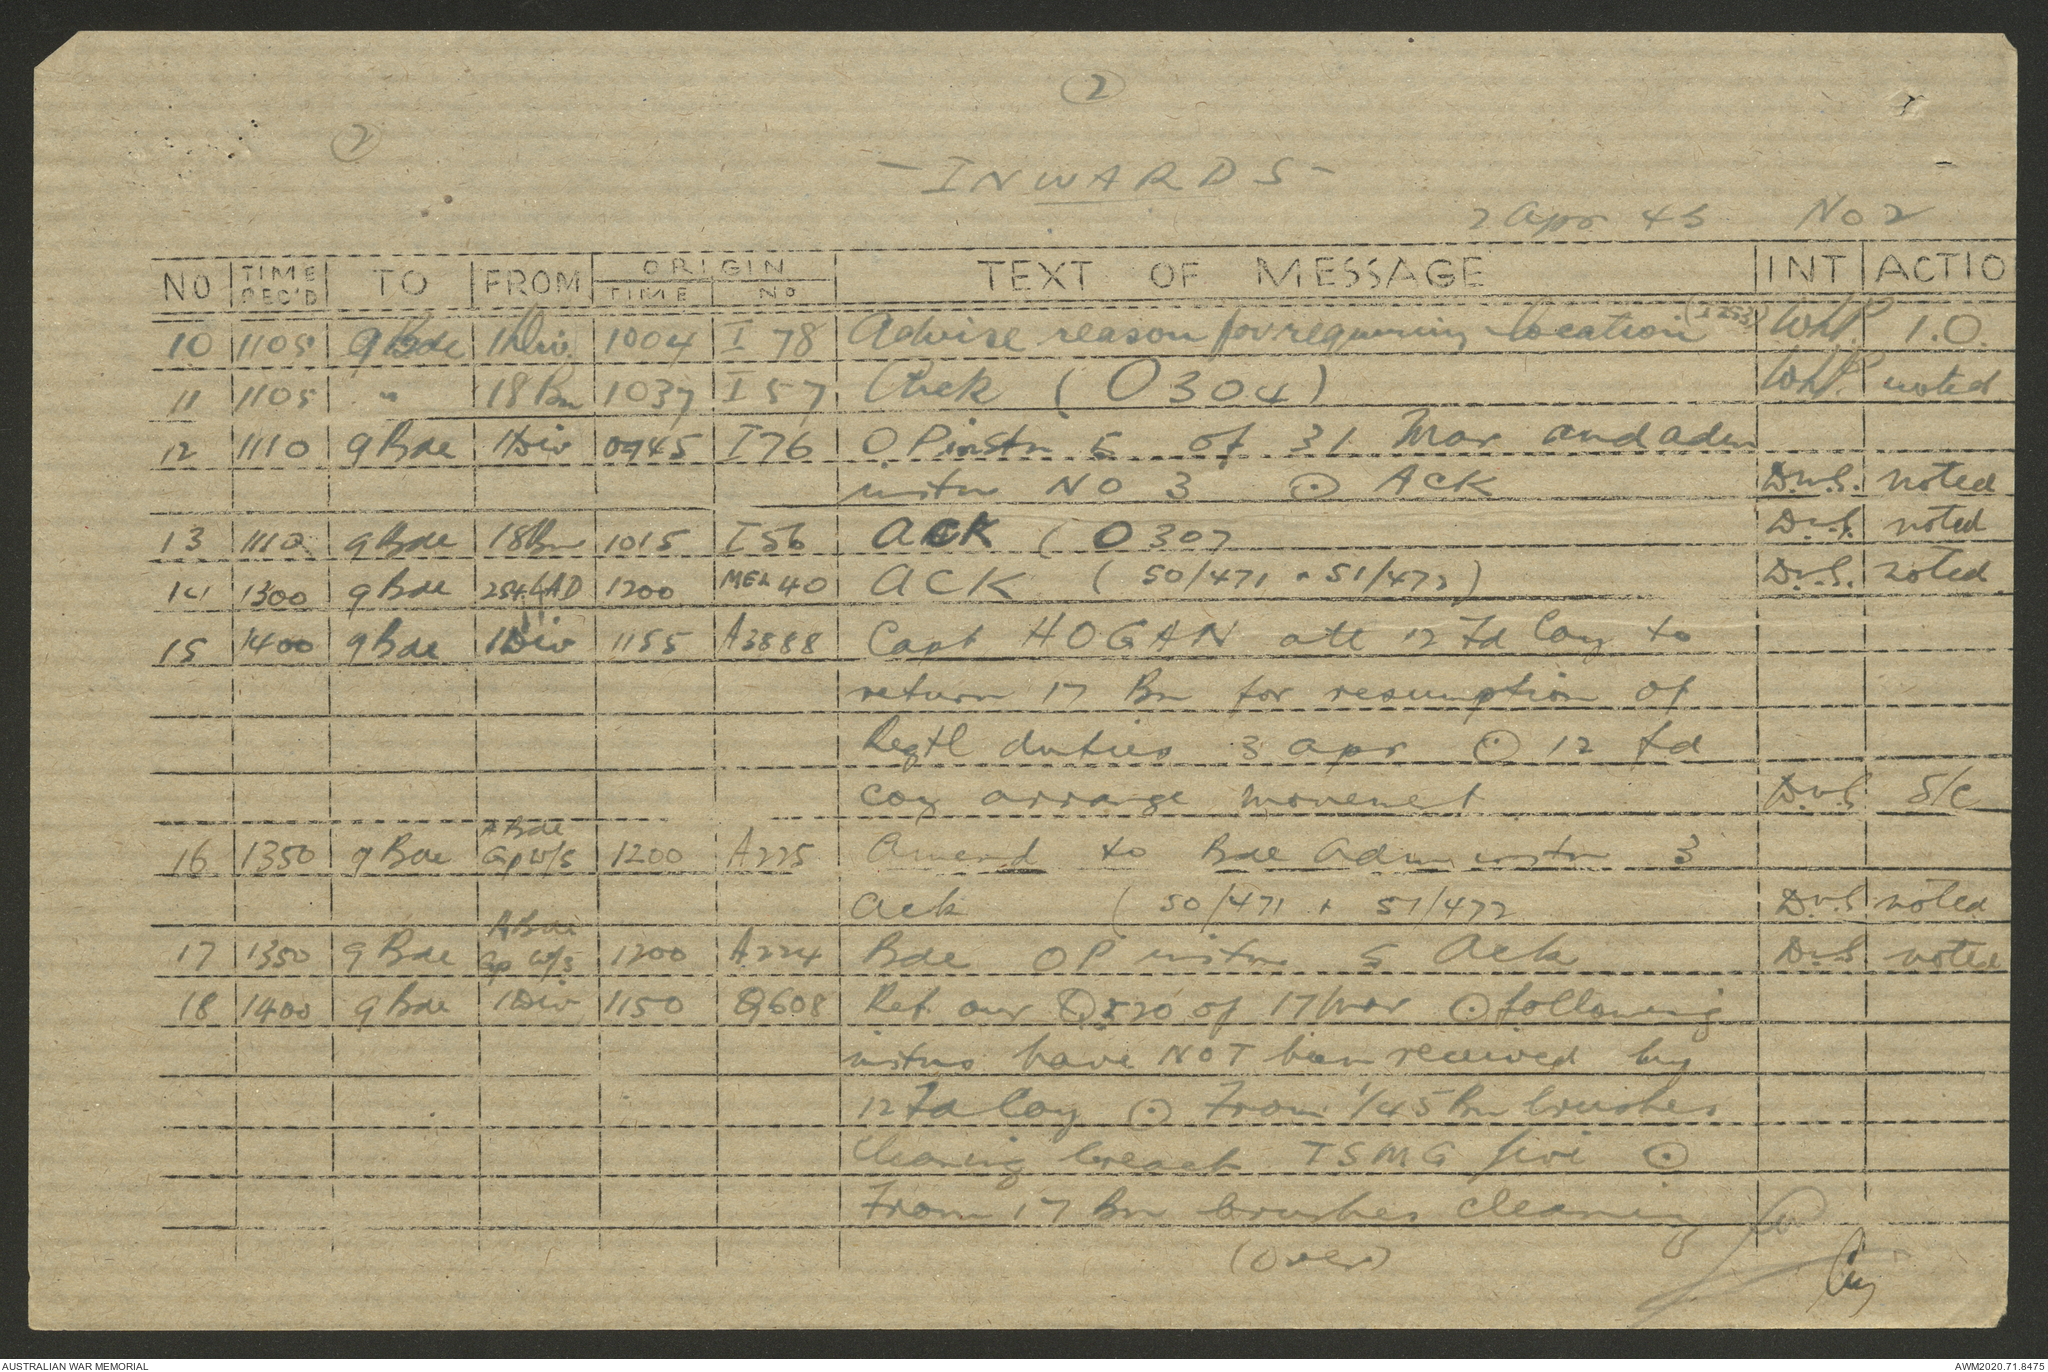 2
2
- INWARDS -
2 Apr 45 No 2
NO TIME REC'D TO FROM ORIGIN TIME NO TEXT OF MESSAGE INT ACTIO
10 1105 9 Bde 1 Div 1004 I 78 Advise reason for requiring location (I253) WhP. I.O.
11 1105 " 18 Bn 1037 I 57 Ack (O304) WhP. noted
12 1110 9 Bde 1 Div 0945 I 76 OP instn 5 of 31 Mar and adm
instn NO 3 ⊙ ACK D.v.S. noted
13 1110 9 Bde 18 Bn 1015 I 56 ACK (O307 D.v.S. noted
14 1300 9 Bde 254 LAD 1200 MEL 40 ACK (50/471 + 51/472) D.v.S. noted
15 1400 9 Bde 1 Div 1155 A3888 Capt HOGAN att 12 Fd Coy to
return 17 Bn for resumption of
Regtl duties 3 Apr ⊙ 12 Fd
Coy arrange movement D.v.S S/C
16 1350 9 Bde A Bde Gp W/S 1200 A225 Amend to Bde Adm instn 3
Ack (50/471 + 51/472 D.v.S noted
17 1350 9 Bde A Bde Gp W/S 1200 A224 Bde OP instn 5 Ack D.v.S noted
18 1400 9 Bde 1 Div 1150 Q608 Ref our Q520 of 17 Mar ⊙ following
instns have NOT been received by
12 Fd Coy ⊙ From 1/45 Bn brushes
cleaning breach TSMG five ⊙
From 17 Bn brushes cleaning
(Over)
AUSTRALIAN WAR MEMORIAL AWM2020.71.8475